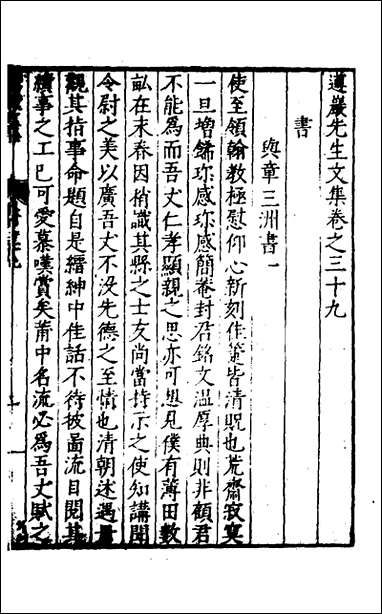 遵巖先生文集卷之三十九
書
與章三洲書一
使至領翰教極慰仰心新刻佳箑皆清貺也荒齋寂寞
一旦增鏽珎感珎感簡菴封君銘文溫厚典則非顧君
不能為而吾丈仁孝顯親之思亦可想見僕有薄田數
畝在末春因稍識其縣之士友尚當持示之使知講聞
令尉之美以廣吾丈不沒先德之至情也清朝述遇
觀其指事命題自是縉紳中佳話不待披圖流目閱其
續事之工已可愛慕嘆賞矣莆中名流必為吾丈賦之